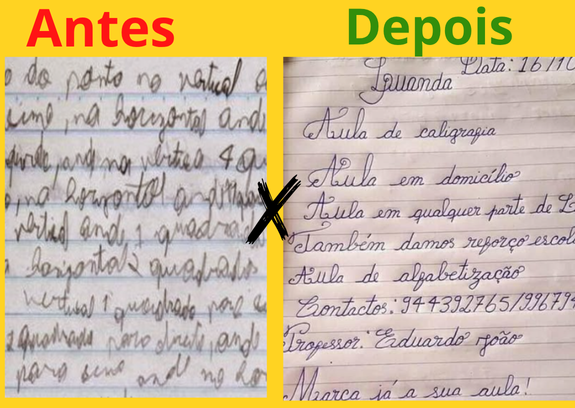 Antes
Depois
do ponto no vertical
cima, na horizontal and
and na vertical 4 qu
na horizontal
vertical and 1 quadrado
horizontal 2 quadrados
vertical 1 quadrado para
quadrado para direita, ande
para cima and no ho
Data: 16/10
Luanda
Aula de caligrafia
Aula em domicílio
Aula em qualquer parte de L
Também damos reforço escola
Aula de alfabetização
Contactos: 944392765/996794
Professor: Eduardo João
Marca já a sua aula!